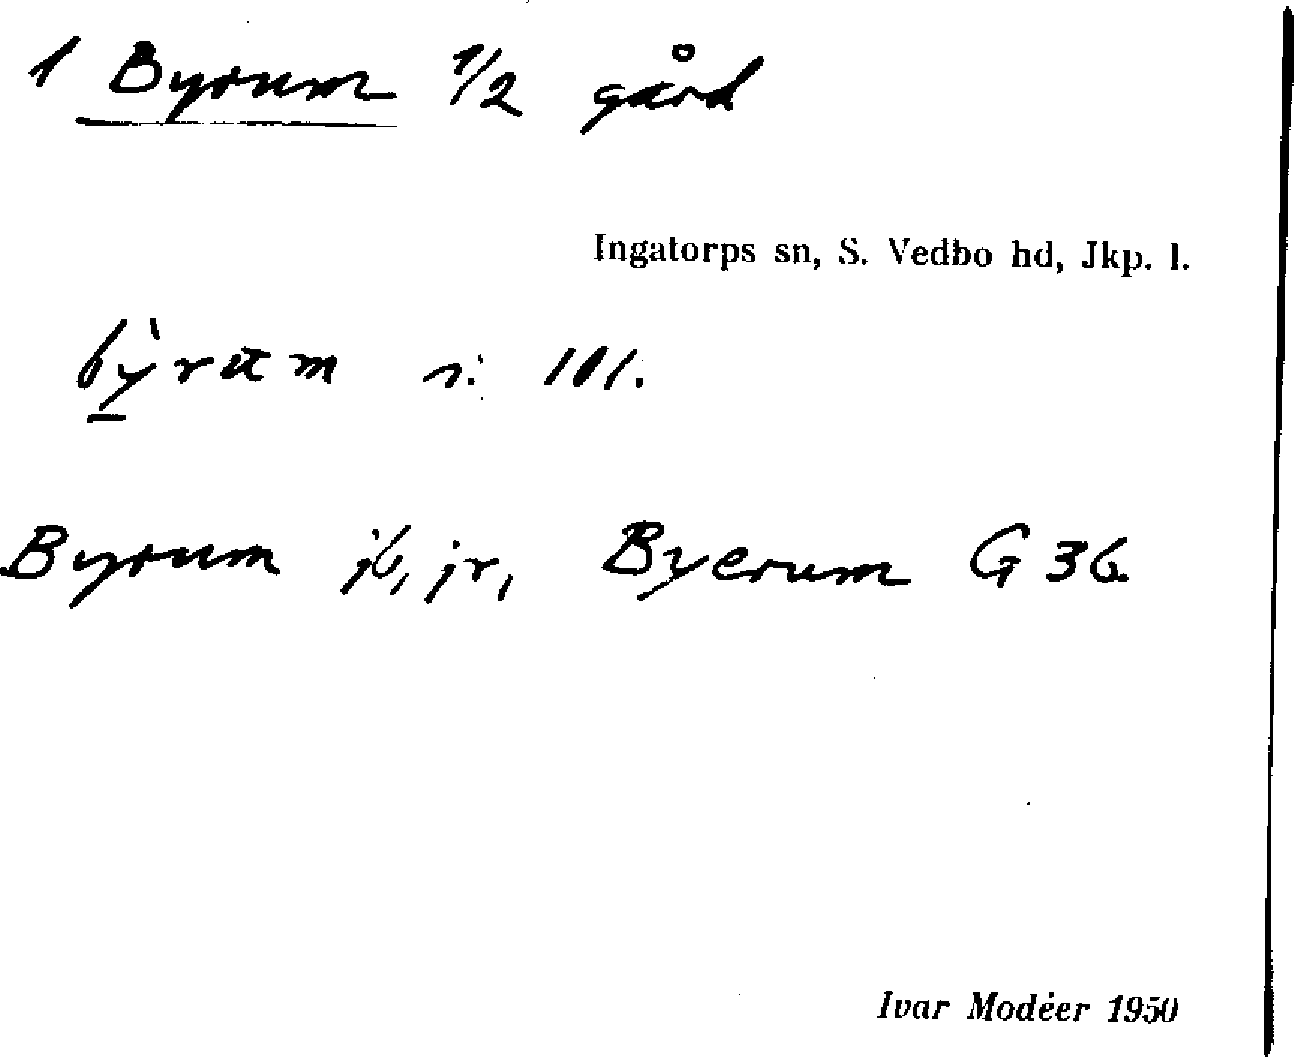 1 Byrum 1/2 gård
Ingatorps sn, S. Vedbo hd, Jkp. l.
s. 101.
Byrum jb, jr, Byerum G 36
Ivar Modéer 1950